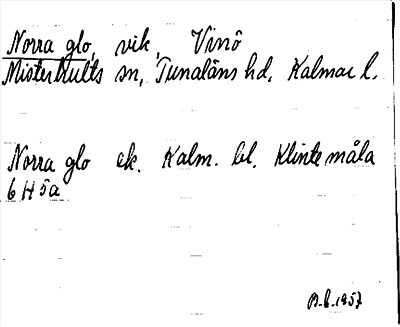 Norra glo, vik, Vinö
Misterhults sn, Tunaläns hd, Kalmar l.
Norra glo ek. Kalm. bl. Klintemåla
6 H 5a
B.6.1957